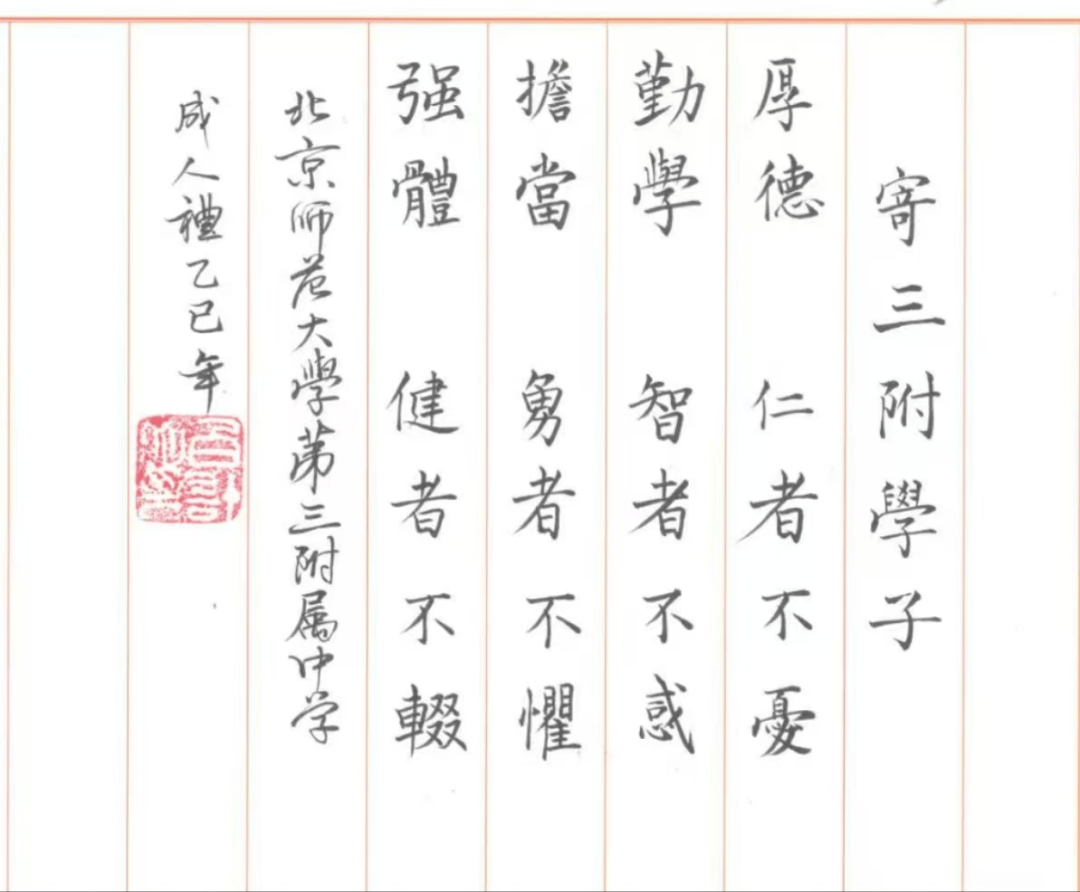 寄三附學子
厚德 仁者不憂
勤學 智者不惑
擔當 勇者不懼
强體 健者不輟
北京师范大學第三附属中学
成人禮乙巳年